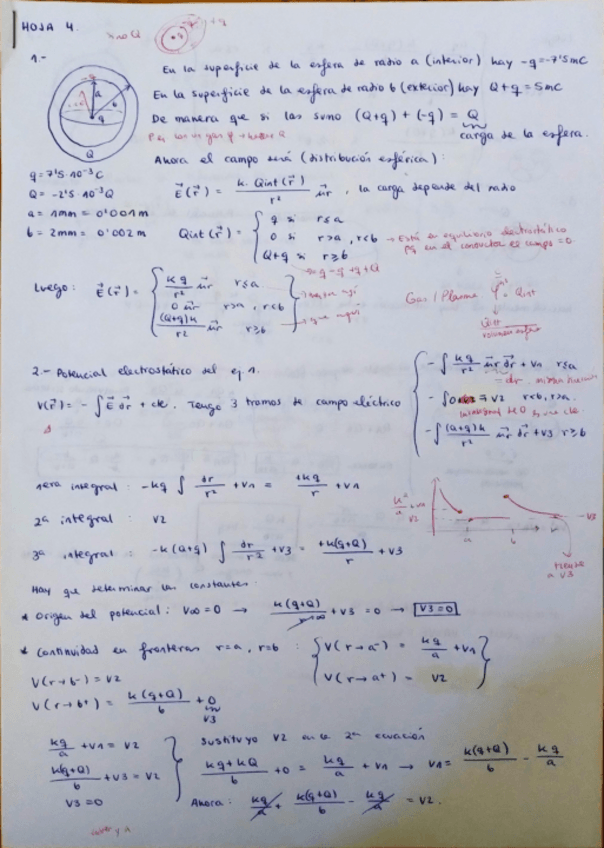 HOJA 4.
+q
1.-
En la superficie de la esfera de radio a (interior) hay -q=-7'5mC
En la superficie de la esfera de radio b (exterior) hay Q+q = 5mC
De manera que si las sumo (Q+q) + (-q) = Q
carga de la esfera.
Ahora el campo será (distribución esférica):
a
b
q
Q
q = 7'5·10⁻³ C
Q = -2'5·10⁻³ Q
a = 1mm = 0'001m
b = 2mm = 0'002m
E⃗(r⃗) = k·Qint(r⃗)/r² u⃗r, la carga depende del radio
Qint(r⃗) = { q si r≤a
0 si r>a, r<b → Está en equilibrio electrostático
pq en el conductor es campo=0
Q+q si r≥b
→ q-q+q+Q
Luego: E⃗(r⃗) = { kq/r² u⃗r r≤a
0 u⃗r r>a, r<b
(Q+q)k/r² u⃗r r≥b
Gas/Plasma
2.- Potencial electrostático del ej 1.
V(r⃗) = -∫E⃗ dr⃗ + cte. Tengo 3 tramos de campo eléctrico
-∫ kq/r² u⃗r dr⃗ + V1 r≤a
= dr.
V2 r<b, r>a.
-∫ (Q+q)k/r² u⃗r dr⃗ + V3 r≥b
1era integral: -kq ∫ dr/r² + V1 = +kq/r + V1
2ª integral: V2
3ª integral: -k(Q+q) ∫ dr/r² + V3 = +k(q+Q)/r + V3
V2
a
b
r
tiende
a V3
Hay que determinar las constantes:
* Origen del potencial: V∞=0 → k(q+Q)/r→∞ + V3 = 0 → V3=0
* Continuidad en fronteras r=a, r=b: { V(r→a⁻) = kq/a + V1
V(r→a⁺) = V2
V(r→b⁻) = V2
V(r→b⁺) = k(q+Q)/b + 0
V3
kq/a + V1 = V2
k(q+Q)/b + V3 = V2
V3=0
Sustituyo V2 en la 2ª ecuación
kq+kQ/b + 0 = kq/a + V1 → V1 = k(q+Q)/b - kq/a
Ahora: kq/a + k(q+Q)/b - kq/a = V2.